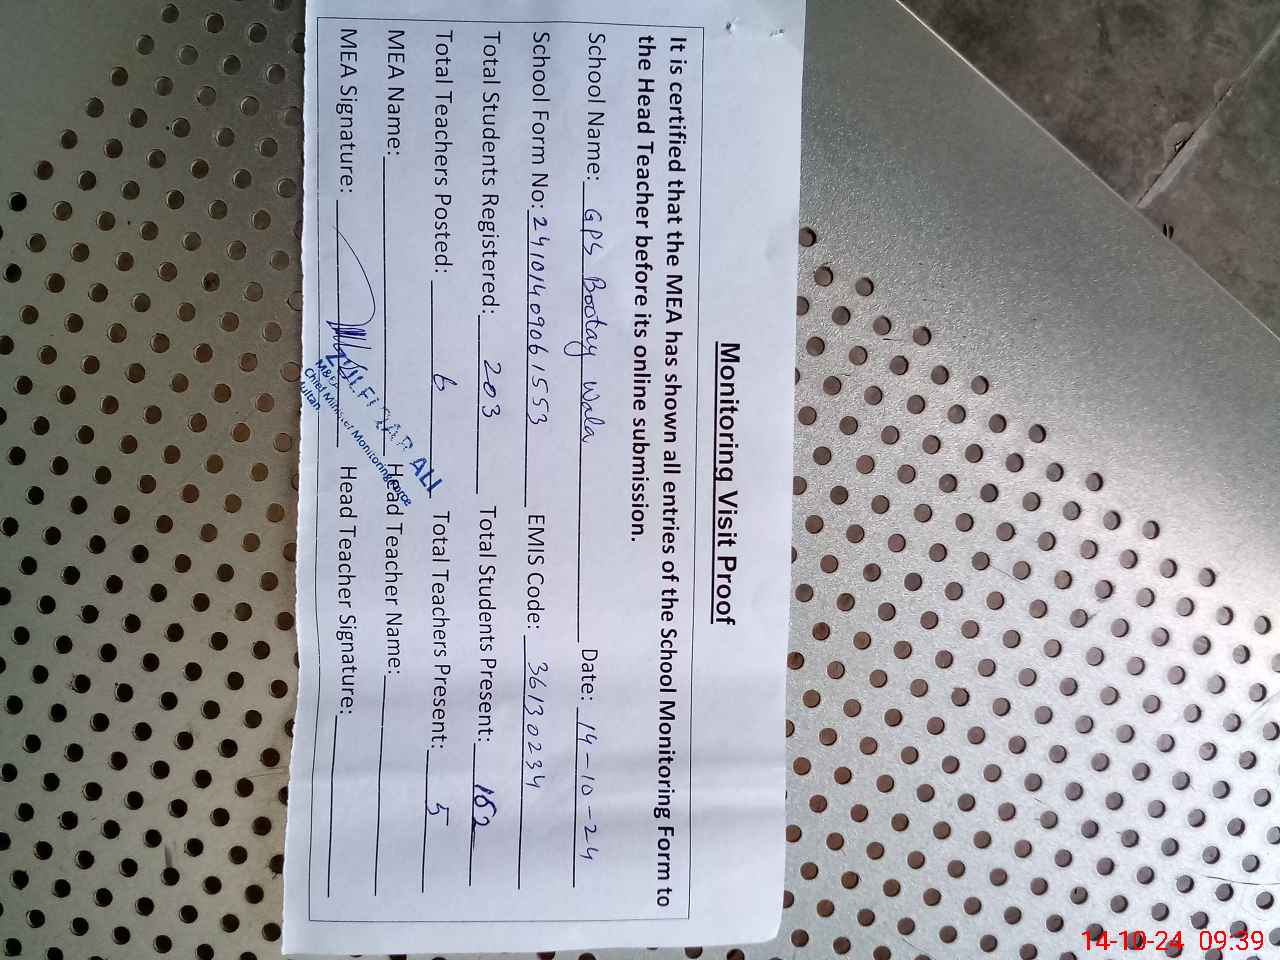 Monitoring Visit Proof
It is certified that the MEA has shown all entries of the School Monitoring Form to
the Head Teacher before its online submission.
School Name: GPS Bootay Wala Date: 14-10-24
School Form No: 24101409061553 EMIS Code: 36130234
Total Students Registered: 203 Total Students Present: 182
Total Teachers Posted: 6 Total Teachers Present: 5
MEA Name: Head Teacher Name:
MEA Signature: Head Teacher Signature:
ZULFIQAR ALI
Chief Minister Monitoring Force
Multan
14-10-24 09:39